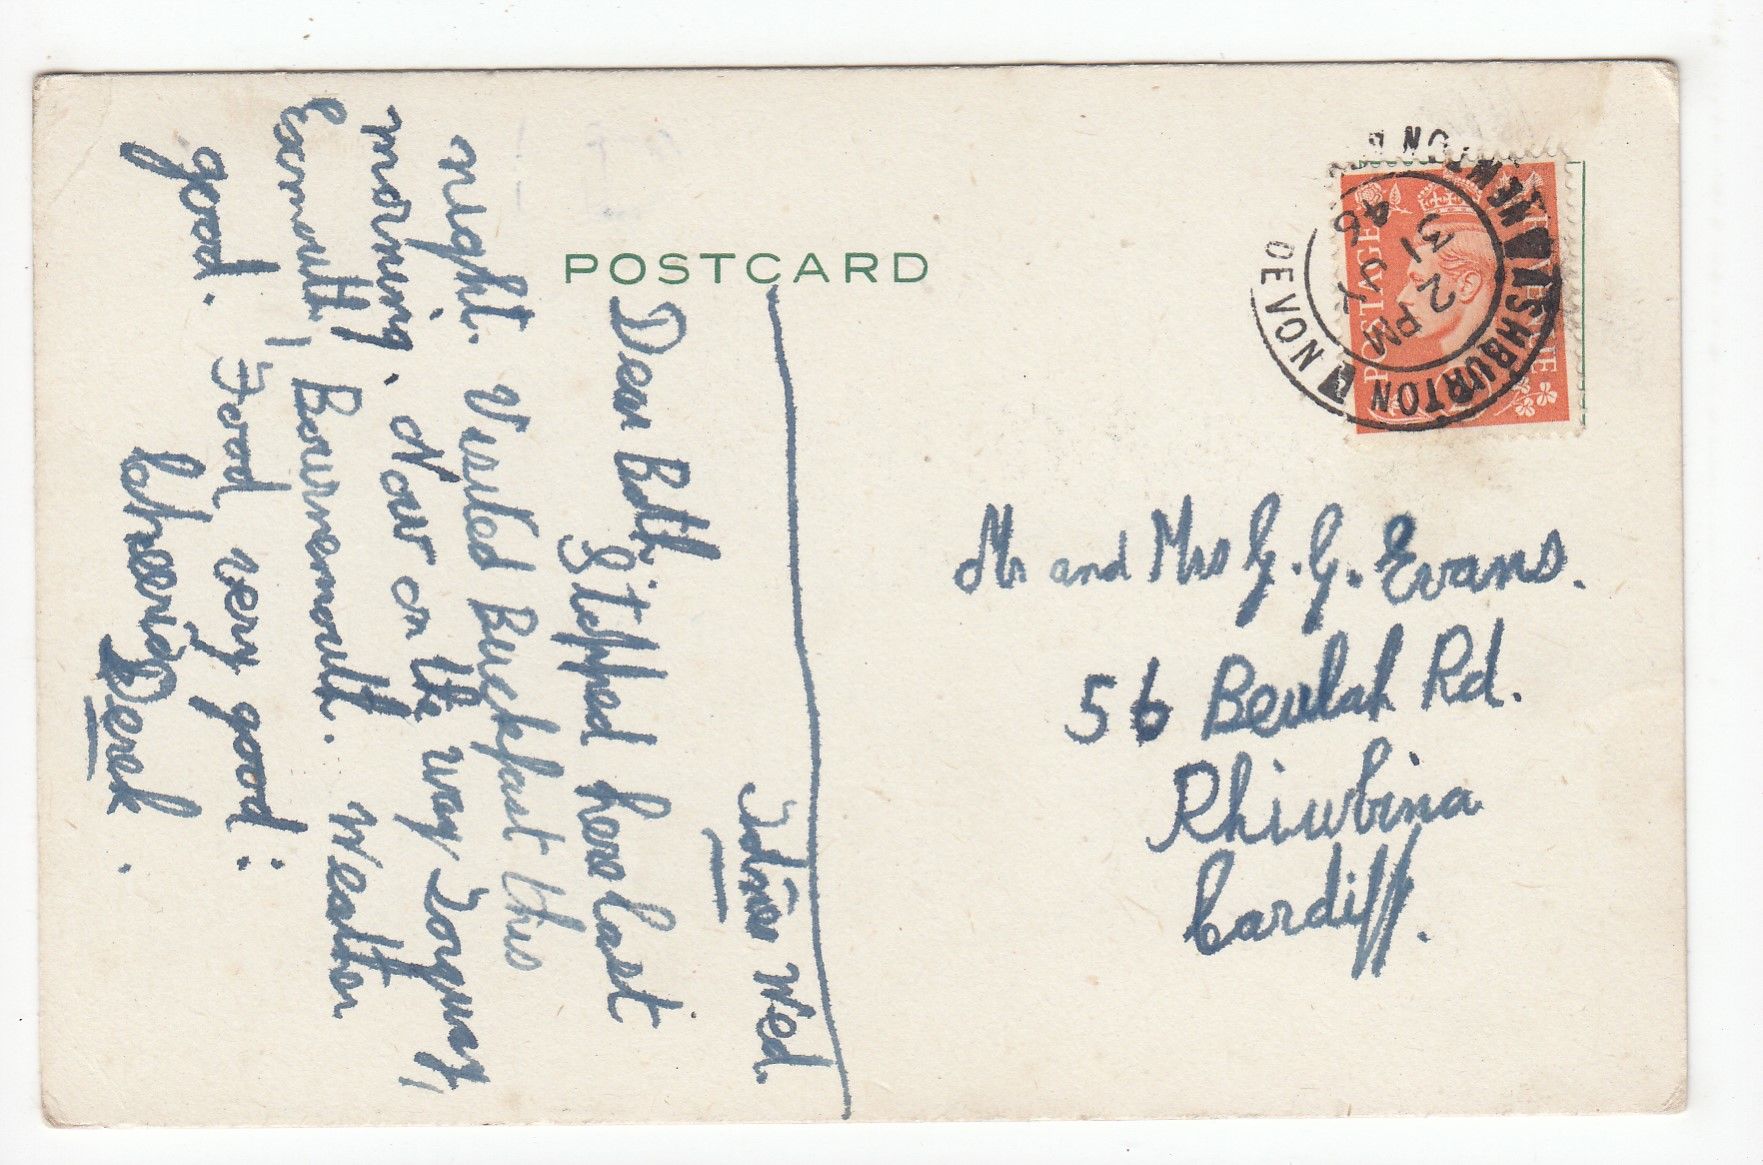 POSTCARD
Wed.
Dear Both,
Stopped here last
night. Visited Buckfast this
morning. Now on the way Torquay,
Exmouth, Bournemouth. Weather
good. Food very good:
Cheerio
Derek.
Mr and Mrs G. G. Evans.
56 Beulah Rd.
Rhiwbina
Cardiff.
ASHBURTON
NEWTON ABBOT
DEVON
2 PM
31 JY
46
POSTAGE
REVENUE